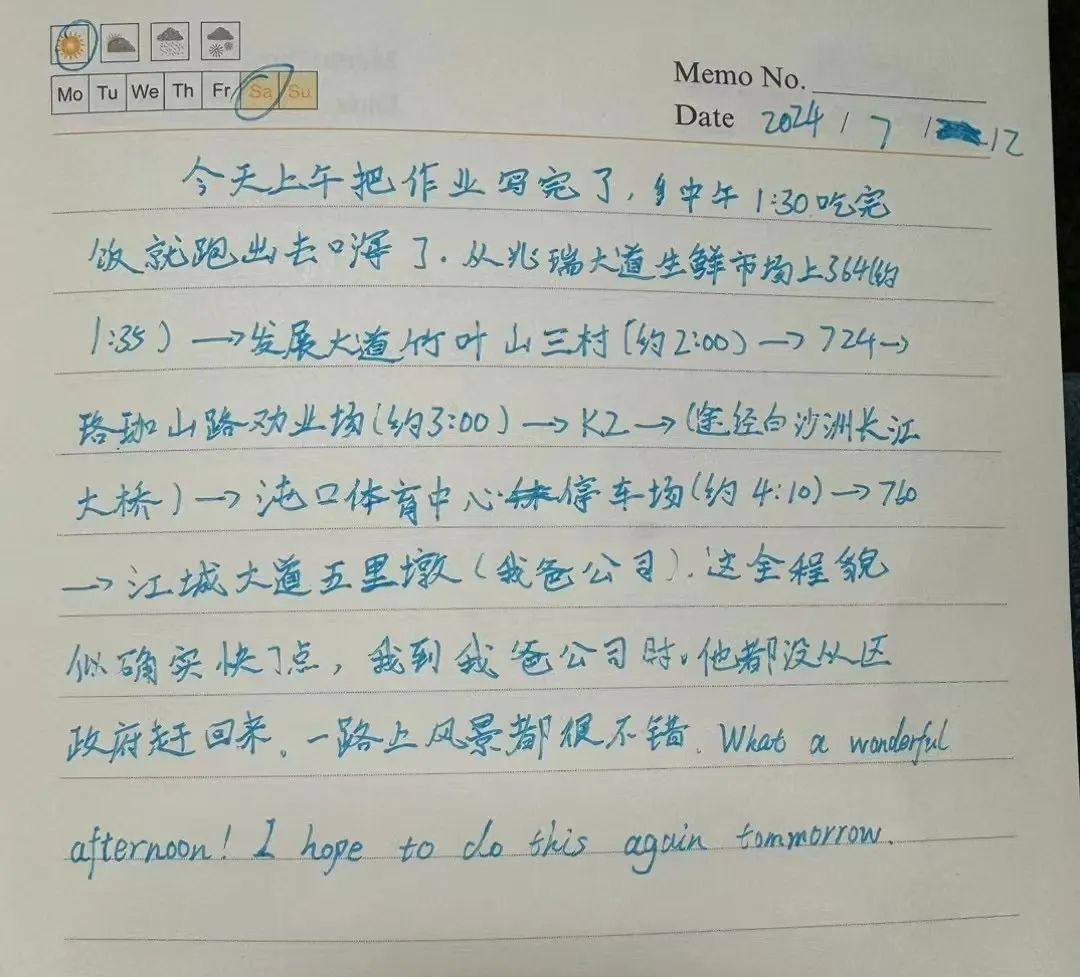 Mo Tu We Th Fr Sa Su
Memo No.
Date 2024 / 7 / 12
今天上午把作业写完了，中午1:30吃完
饭就跑出去嗨了.从兆瑞大道生鲜市场上364(约
1:35）→发展大道竹叶山三村(约2:00)→724→
珞珈山路劝业场(约3:00)→K2→(途经白沙洲长江
大桥)→沌口体育中心停车场(约4:10)→760
→江城大道五里墩(我爸公司).这全程貌
似确实快了点，我到我爸公司时。他都没从区
政府赶回来。一路上风景都很不错. What a wonderful
afternoon! I hope to do this again tommorrow.